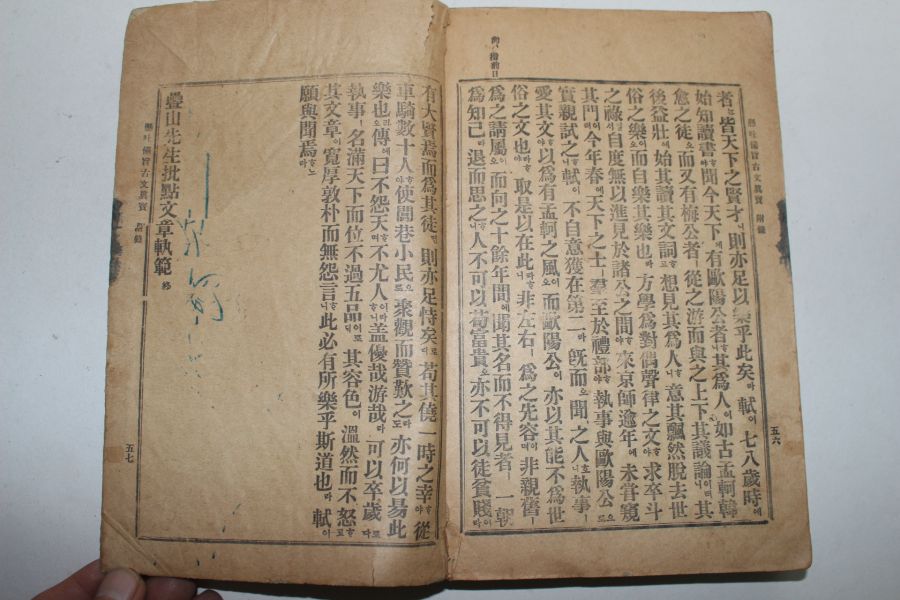 向ハ猶前日
懸吐備旨古文眞寶 附錄
五六
者ᄂᆞᆫ皆天下之賢才니則亦足以樂乎此矣라軾이七八歲時에
始知讀書ᄒᆞ야聞今天下에有歐陽公者ᄒᆞ니其爲人이如古孟軻韓
愈之徒오而又有梅公者ᄒᆞ니從之游而與之上下其議論이러니其
後益壯에始讀其文詞ᄒᆞ고想見其爲人ᄒᆞ니意其飄然脫去世
俗之樂오而自樂其樂也라方學爲對偶聲律之文ᄒᆞ야求卒斗
之祿서自度無以進見於諸公之間ᄒᆞ야來京師逾年에未嘗窺
其門이러니今年春에天下之士ㅣ羣至於禮部ᄒᆞ야執事與歐陽公으로
實親試之ᄒᆞ니軾이不自意獲在第二라旣而오聞之人ᄒᆞ니執事ㅣ
愛其文ᄒᆞ야以爲有孟軻之風이오而歐陽公이亦以其能不爲世
俗之文也ᄒᆞ야取是以在此ᄒᆞ니非左右ㅣ爲之先容이며非親舊ㅣ
爲之請屬이오而向之十餘年間에聞其名而不得見者ㅣ一朝
爲知己라退而思之ᄒᆞ니人不可以苟富貴오亦不可以徒貧賤이라
有大賢焉而爲其徒ㅣ則亦足恃矣로다苟其僥一時之幸ᄒᆞ야從
車騎數十人ᄒᆞ야使閭巷小民으로聚觀而贊歎之라도亦何以易此
樂也리오傳에曰不怨天ᄒᆞ며不尤人이라ᄒᆞ니盖優哉游哉라可以卒歲로다
執事ㅣ名滿天下而位不過五品이로되其容色이溫然而不怒ᄒᆞ고
其文章이寬厚敦朴而無怨言ᄒᆞ니此必有所樂乎斯道也라軾이
願與聞焉ᄒᆞ노라
疊山先生批點文章軌範 終
懸吐備旨古文眞寶 附錄
五七